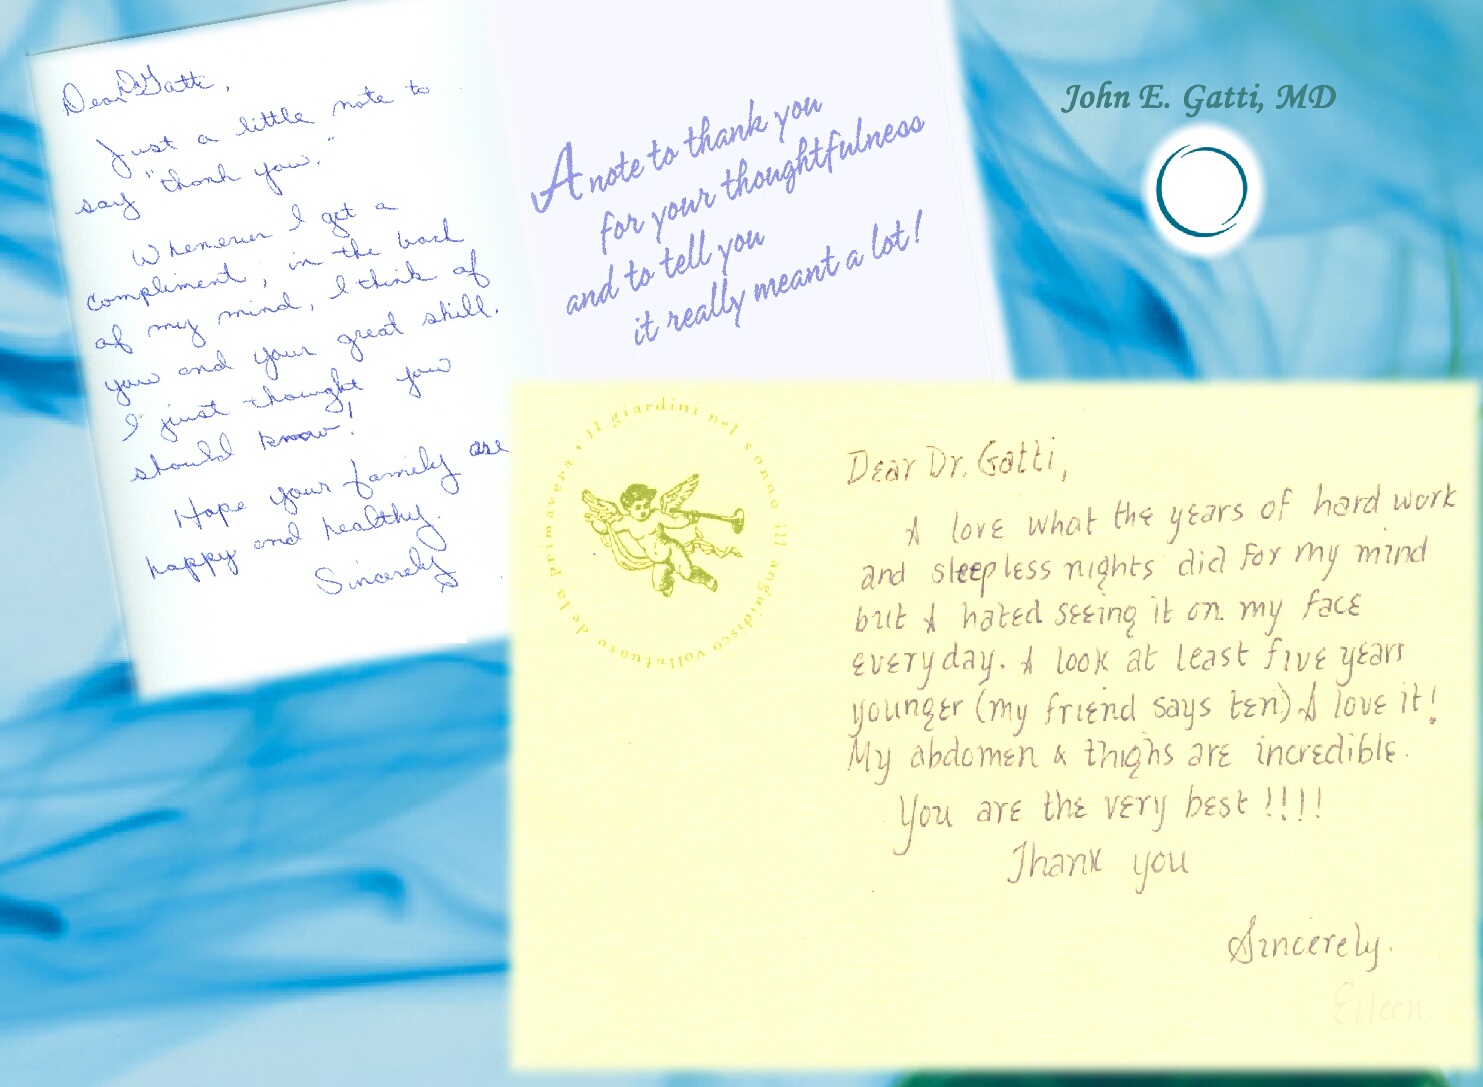 Dear Dr Gatti,
Just a little note to
say "thank you."
Whenever I get a
compliment, in the back
of my mind, I think of
you and your great skill.
I just thought you
should know!
Hope your family are
happy and healthy.
Sincerely
A note to thank you
for your thoughtfulness
and to tell you
it really meant a lot!
John E. Gatti, MD
primavera • il giardini nel sonno illanguidisco volluttuoso de la
Dear Dr. Gatti,
I love what the years of hard work
and sleepless nights did for my mind
but I hated seeing it on my face
everyday. I look at least five years
younger (my friend says ten) I love it!
My abdomen & thighs are incredible.
You are the very best !!!!
Thank you
Sincerely.
Eileen.